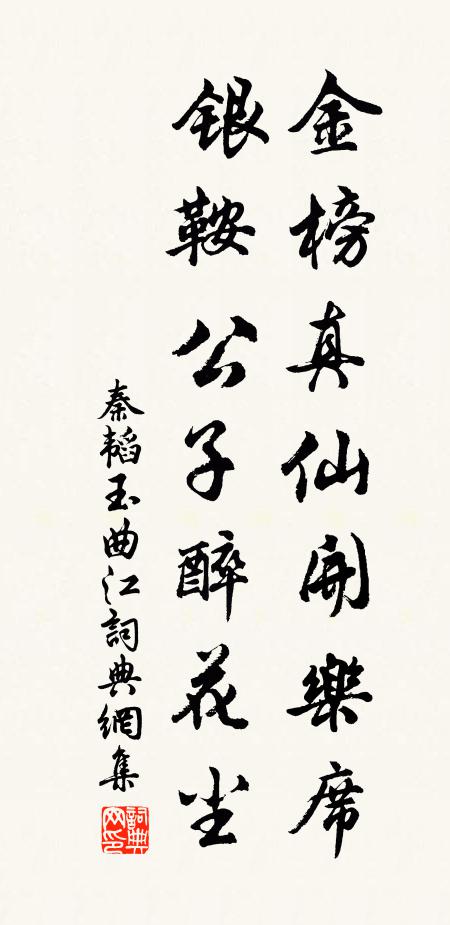 金榜真仙開樂席
銀鞍公子醉花尘
秦韜玉曲江詞典網集
詞典
网印